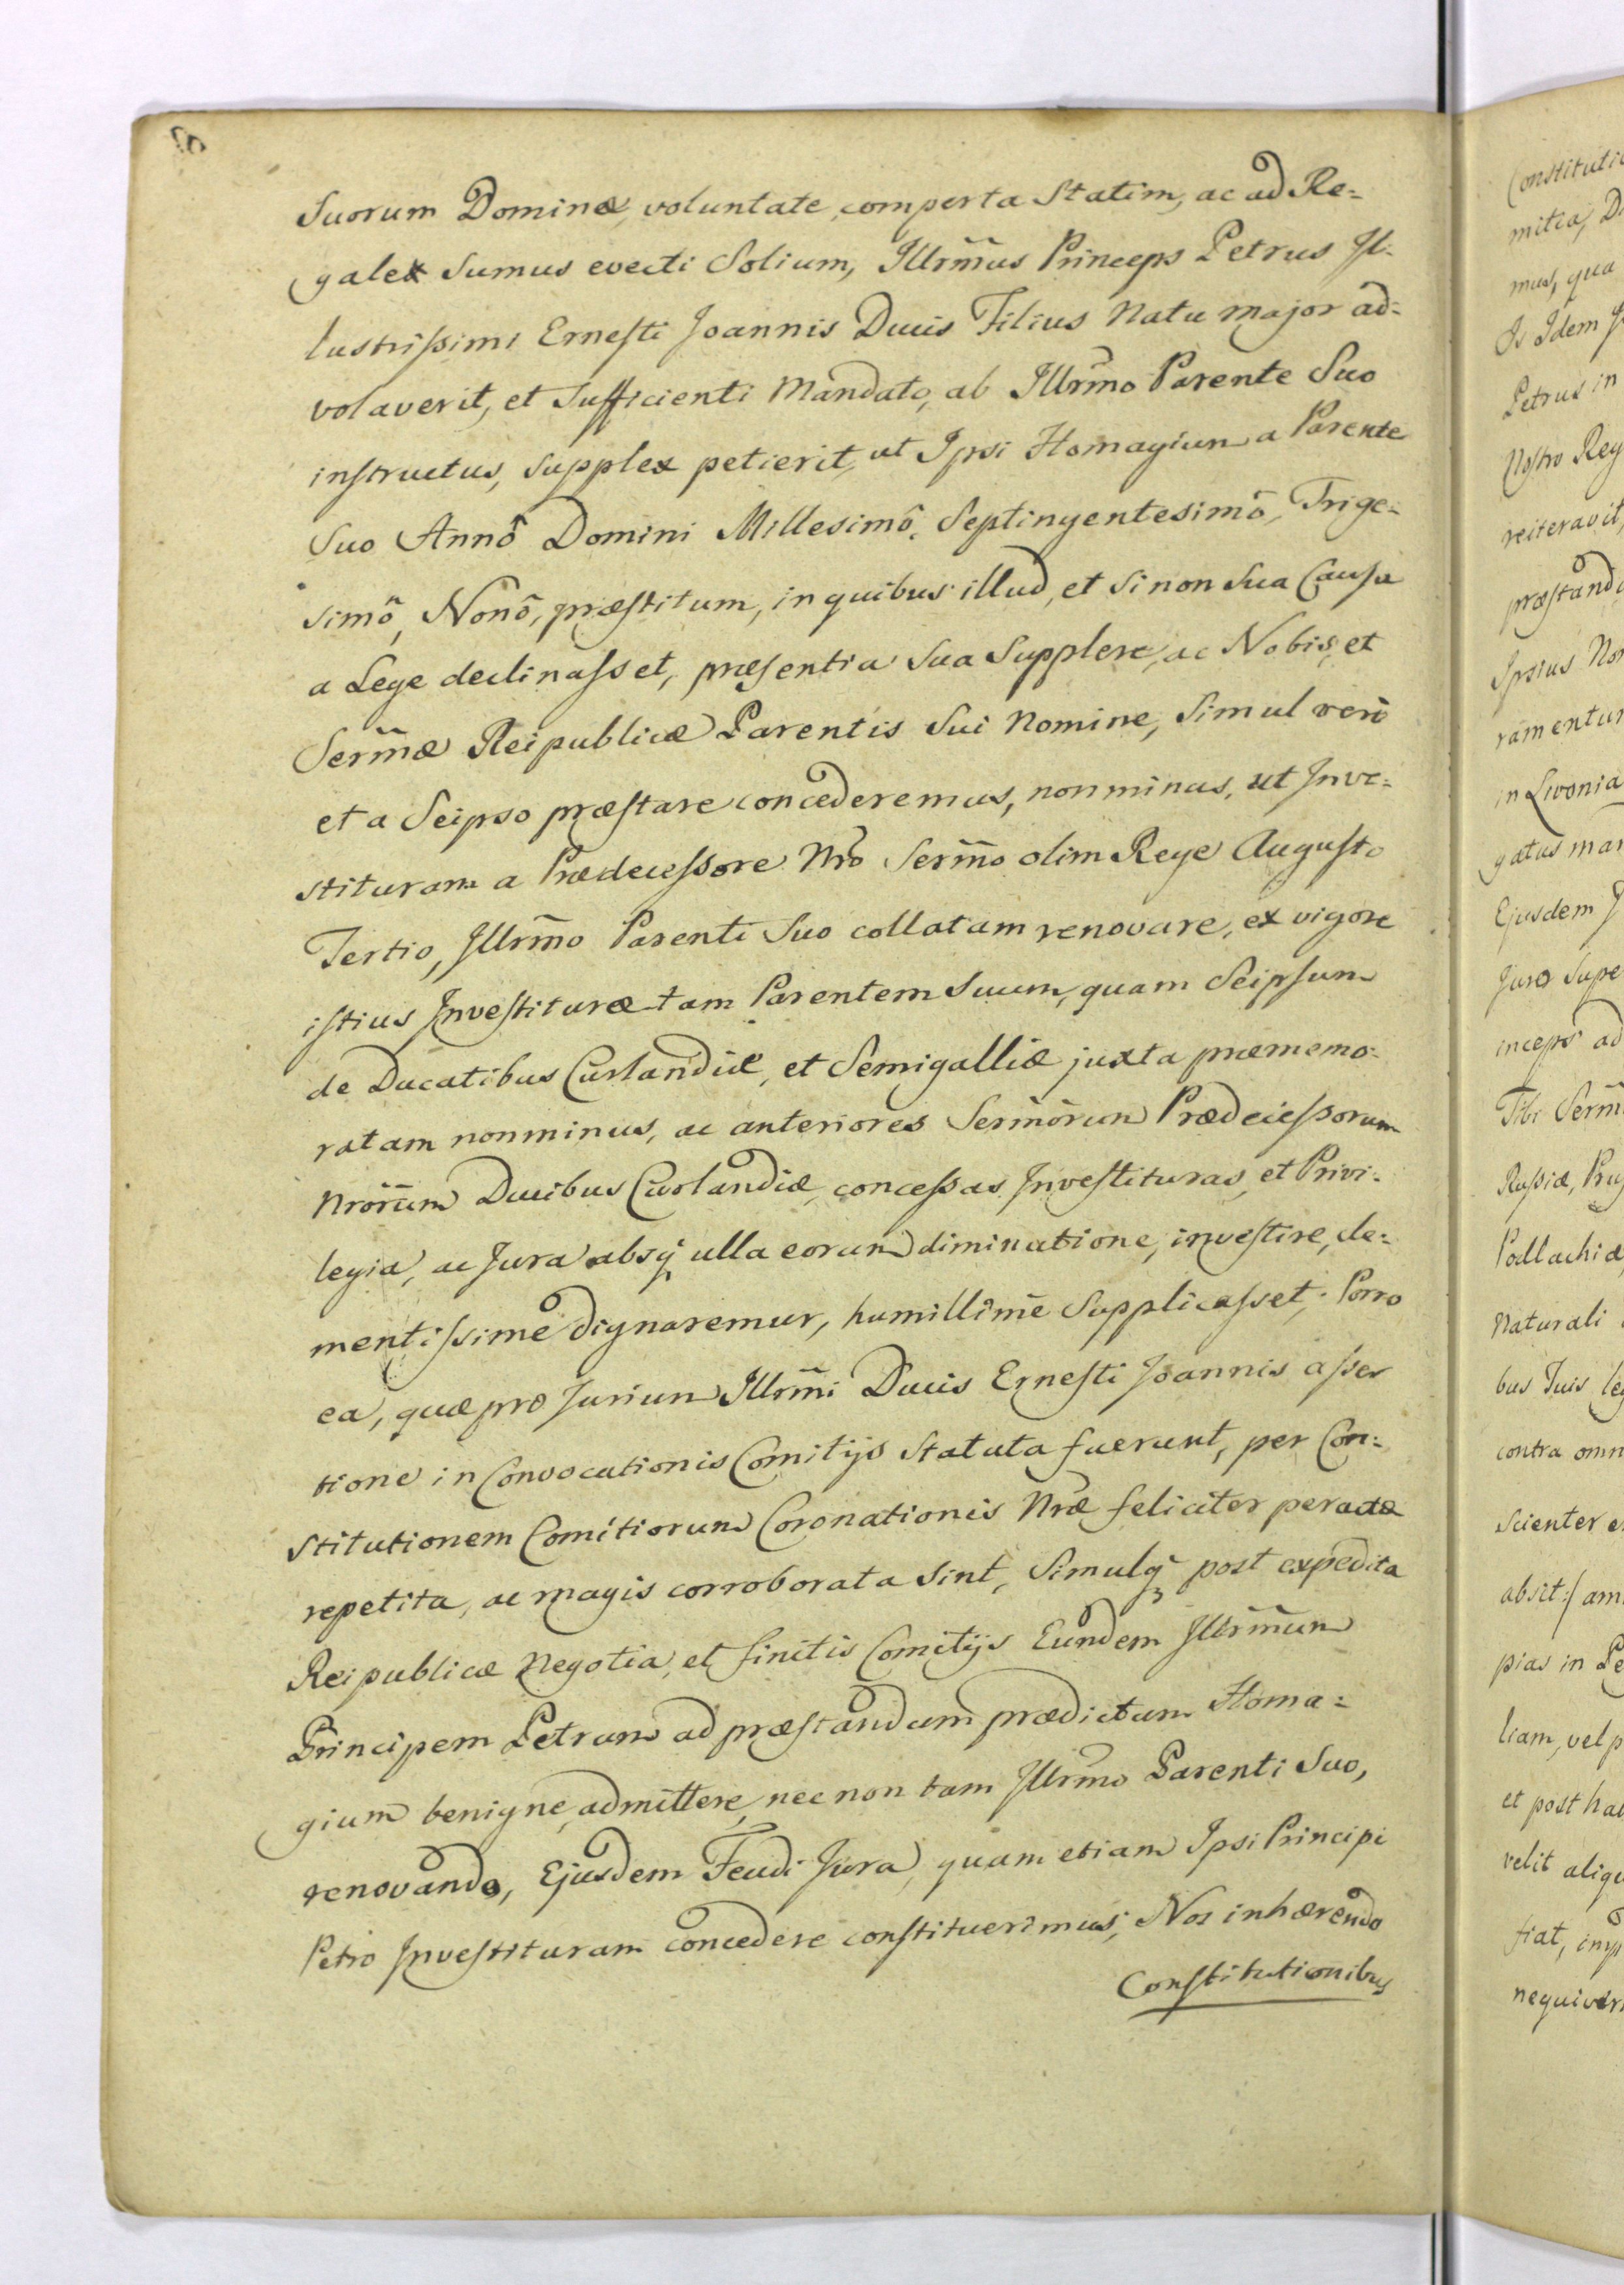 Suorum Dominæ, voluntate comperta Statim, ac ad Re=
gale Sumus evecti Solium, Illrm̃us Princeps Petrus Il-
lustrissimi Ernesti Joannis Ducis Filius Natu major ad=
volaverit, et Sufficienti Mandato, ab Illrm̃o Parente Suo
instructus, Supplex petierit, ut Ipsi Homagium a Parente
Suo Annô Domini Millesimô, Septingentesimô, Trige=
simô, Nonô, præstitum, in quibus illud, et si non Sua Causa
a Lege declinasset, præsentia Sua Supplere, ac Nobis, et
Serm̃æ Reipublicæ Parentis Sui Nomine, Simul verò
et a Seipso præstare concederemus, non minus, ut Inve=
stituram a Prædecessore Nr̃o Serm̃o olim Rege Augusto
Tertio, Illrm̃o Parenti Suo collatam renovare, ex vigore
istius Investituræ tam Parentem Suum, quam Seipsum
de Ducatibus Curlandiæ, et Semigalliæ juxta præmemo-
ratam non minus, ac anteriores Serm̃orum Prædecessorum
Nr̃orum Ducibus Curlandiæ, concessas Investituras, et Privi-
legia, ac Jura absq̃ ulla eorum diminutione, investire, cle=
mentissime dignaremur, humillimè Supplicasset; Porro
ea, quæ pro Jurium Illrm̃i Ducis Ernesti Joannis asser
tione in Convocationis Comitijs Statuta fuerunt, per Con=
stitutionem Comitiorum Coronationis Nr̃æ feliciter peractæ
repetita, ac magis corroborata Sint, Simulq̃ post expedita
Reipublicæ Negotia, et finitis Comitijs Eundem Illrm̃um
Principem Petrum ad præstandum prædictum Homa=
gium benigne admittere, nec non tam Illrm̃o Parenti Suo,
renovando, Ejusdem Feudi Jura, quam etiam Ipsi Principi
Petro Investituram concedere constituerimus; Nos inhærendo
Constitutionibus
mitia, D
mus, qua
Is Idem
Petrus in
Nostro Reg
reiteravit,
Ipsius
in Livonia
Ejusdem
inceps ad
Tibi
Podlachiæ
Naturali
bus Tuis
contra omn
Scienter
absit:/
pias in
liam, vel
et post
velit aliqu
fiat,